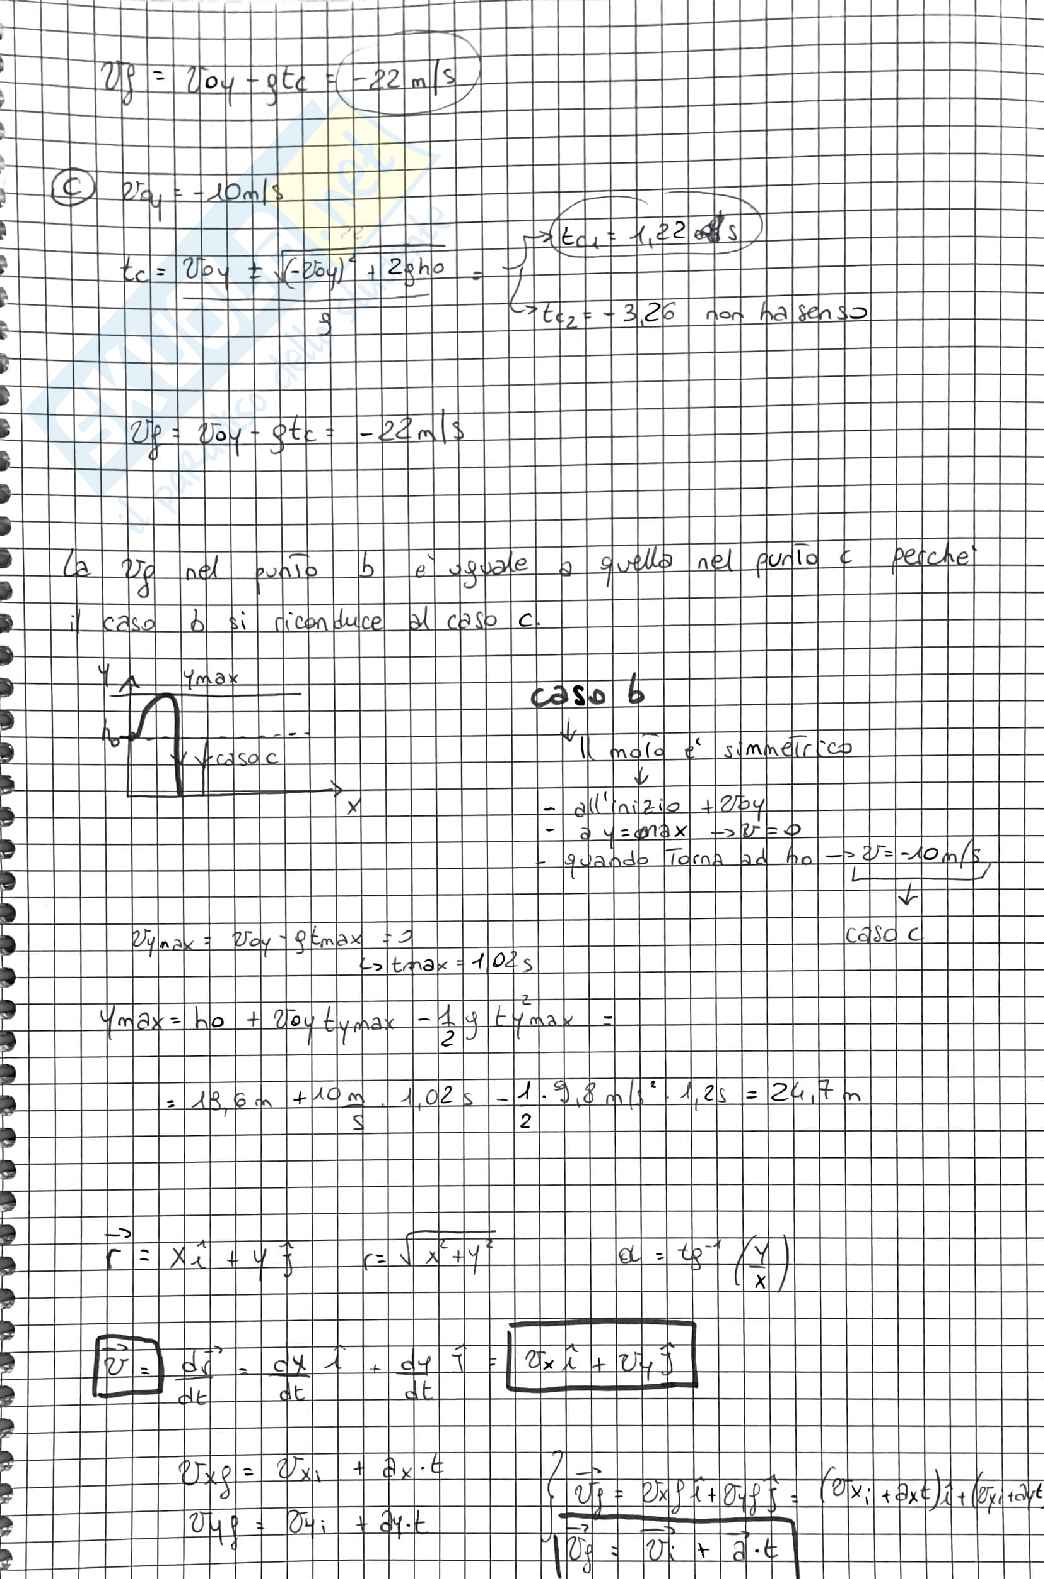 vf = voy - gtc = -22 m/s
C voy = -10 m/s
tc = voy ± √(-voy)² + 2gho / g = → tc1 = 1,22 s
→ tc2 = -3,26 non ha senso
vf = voy - gtc = -22 m/s
La vf nel punto b è uguale a quella nel punto c perchè
il caso b si riconduce al caso c.
y ymax
ho
caso c
x
caso b
↓ Il moto è simmetrico
↓
- all'inizio +voy
- a y=max → v=0
- quando torna ad ho → v=-10m/s
↓
caso c
vymax = voy - gtmax = 0
↳ tmax = 1,02 s
ymax = ho + voy tymax - 1/2 g t²ymax =
= 19,6 m + 10 m/s · 1,02 s - 1/2 · 9,8 m/s² · 1,2s = 24,7 m
r⃗ = xî + yĵ r = √x²+y² α = tg⁻¹ (y/x)
v⃗ = dr⃗/dt = dx/dt î + dy/dt ĵ = vx î + vy ĵ
vxf = vxi + ax·t
vyf = vyi + ay·t
v⃗f = vxf î + vyf ĵ = (vxi + axt)î + (vxi + ayt
v⃗f = v⃗i + a⃗·t